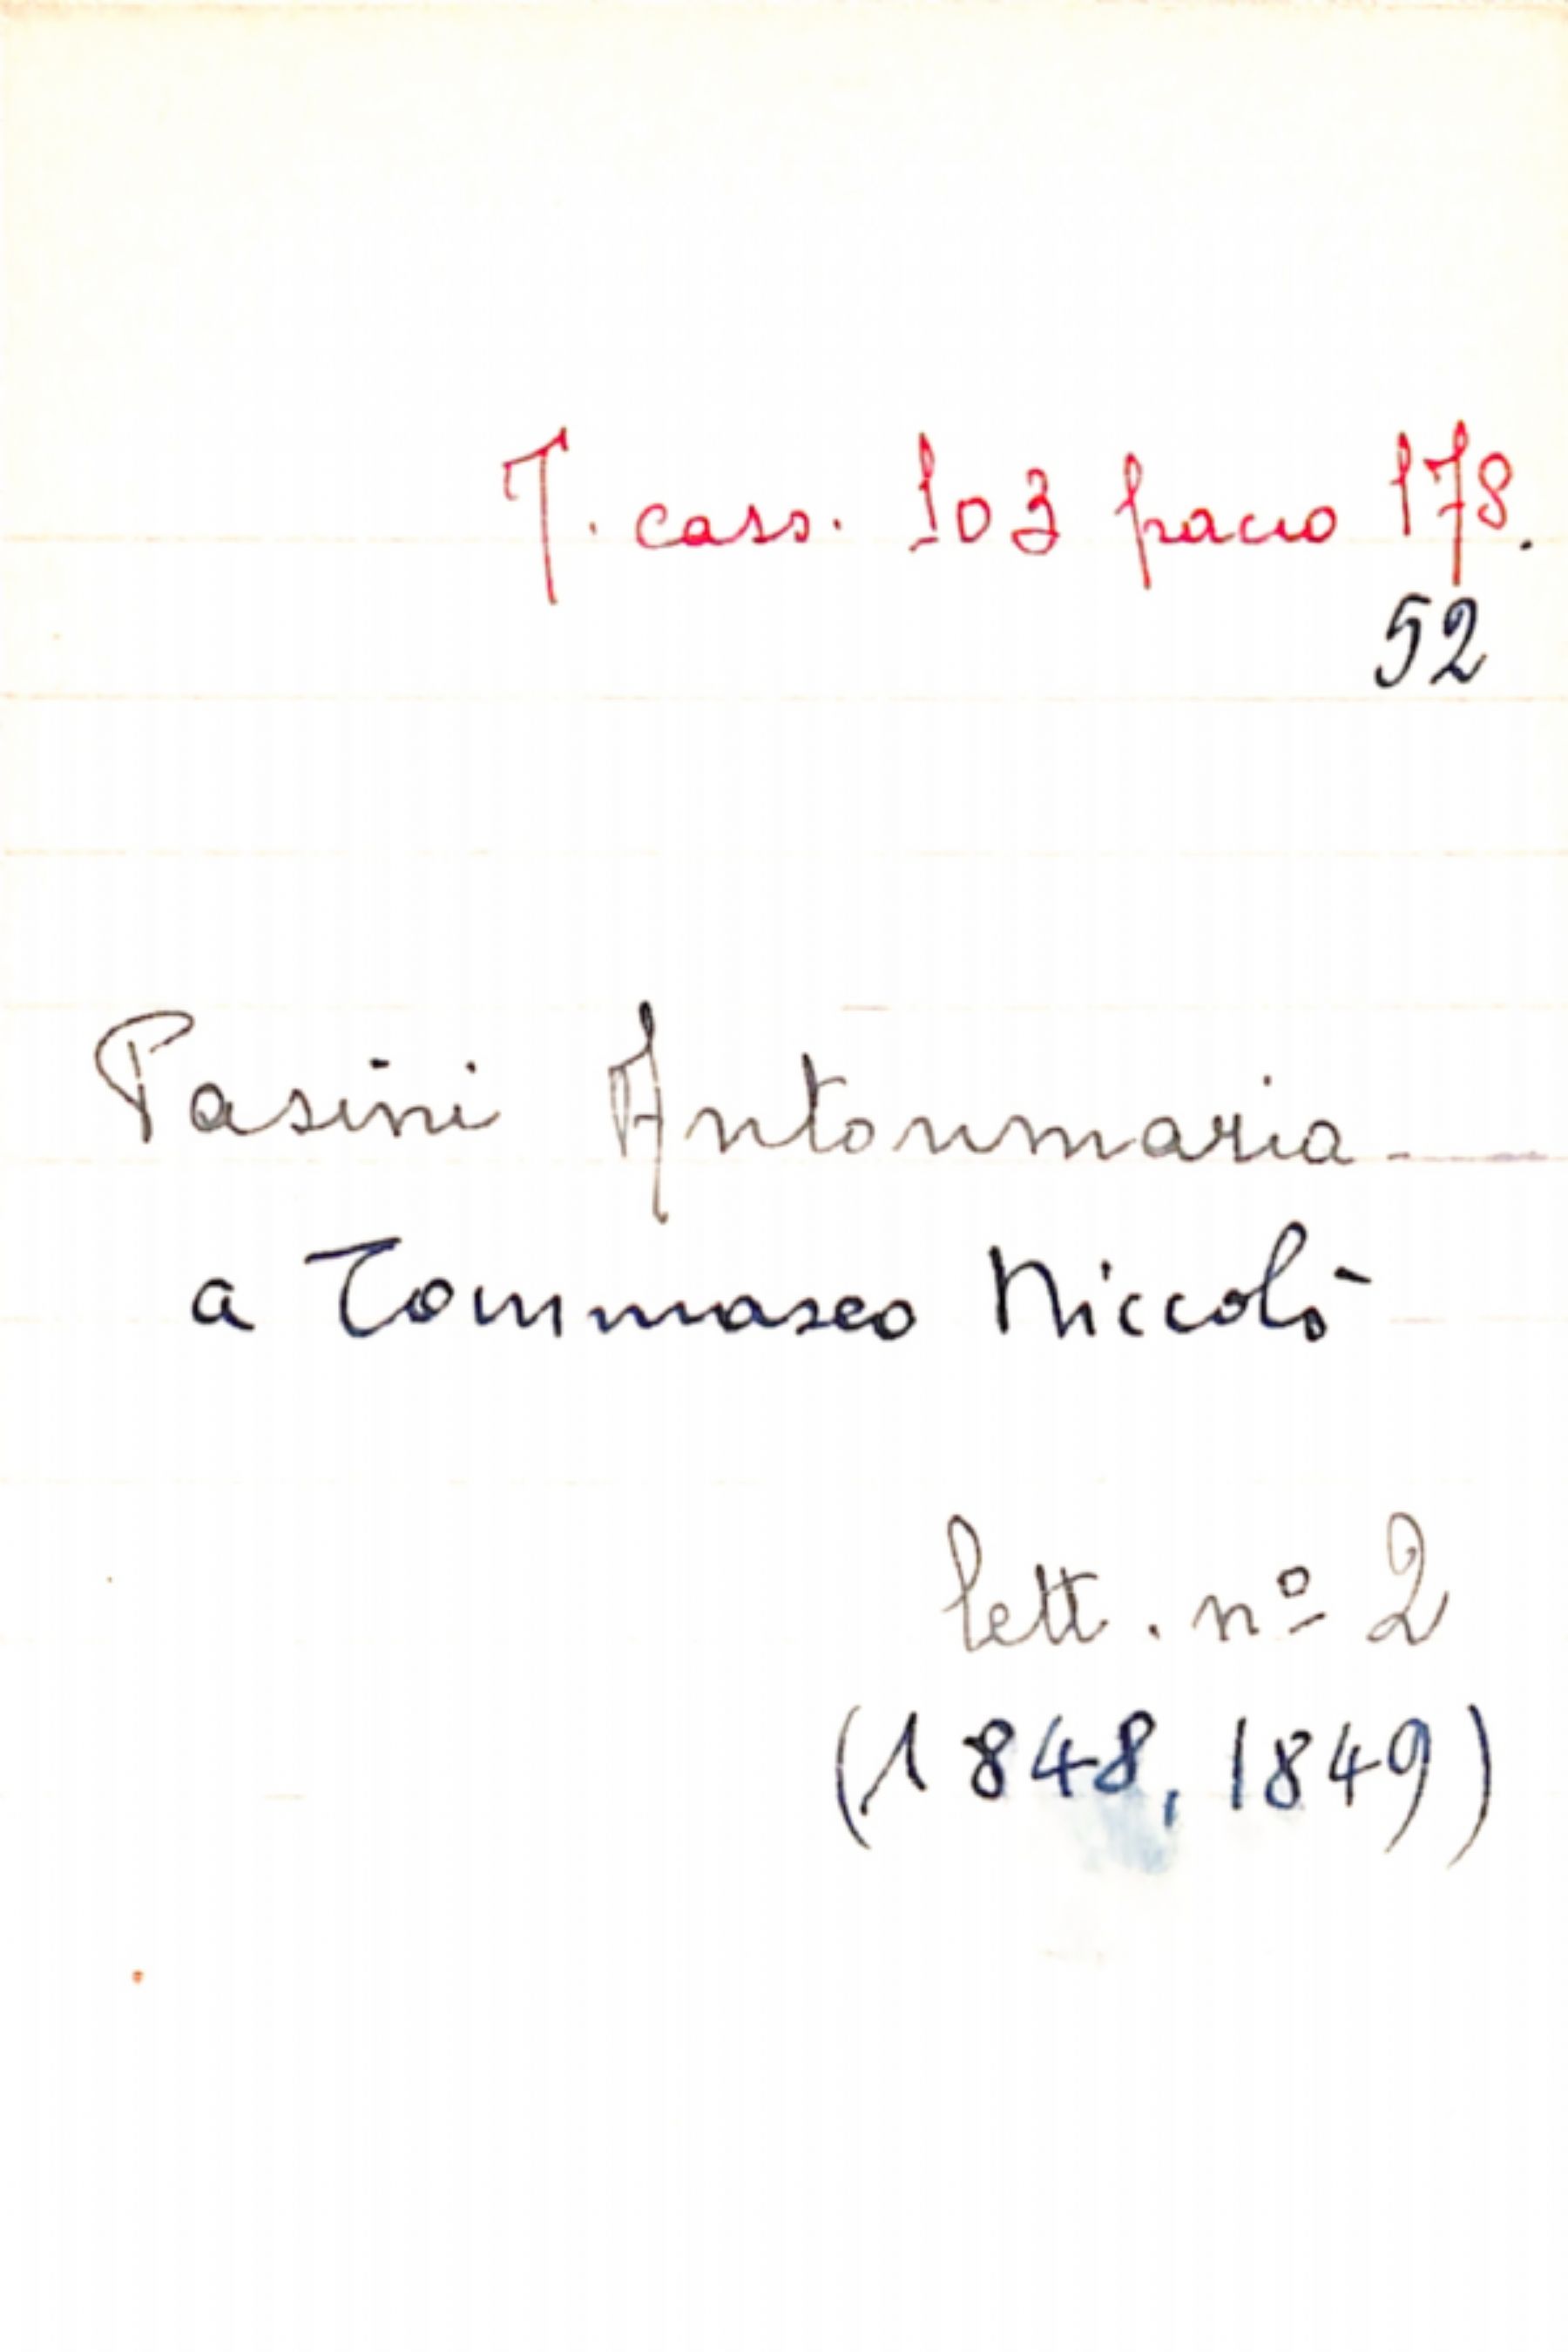 T. cass. 103 pacco 178.
52
Pasini Antonmaria
a Tommaseo Niccolò
lett. nº 2
(1848, 1849)